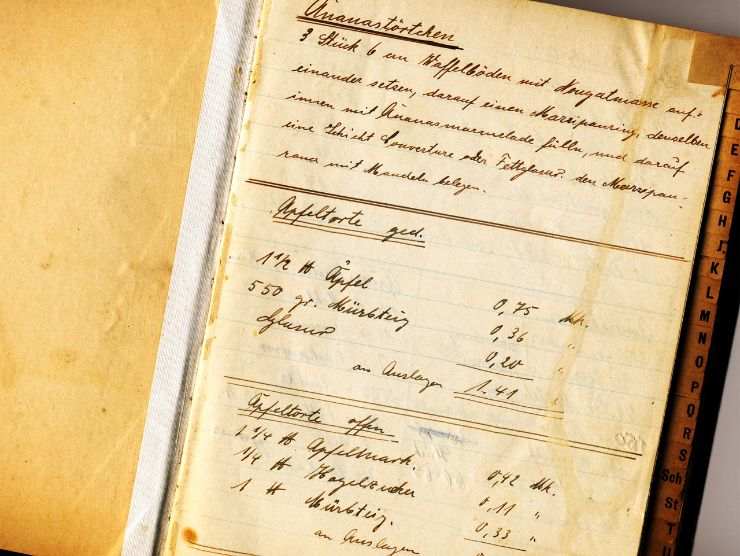 Ananastörtchen
3 Stück 6 cm Waffelböden mit Nougatmasse auf-
einander setzen, darauf einen Marzipanring, denselben
innen mit Ananasmarmelade füllen, und darauf
eine Schicht Couverture oder Fettglasur. den Marzipan-
rand mit Mandeln belegen.
Apfeltorte ged.
1 1/2 ℔ Äpfel 0,75 Mk.
550 gr. Mürbteig 0,36 "
Glasur 0,20 "
an Auslagen 1.41 "
Apfeltorte offen
1 1/4 ℔ Apfelmark. 0,42 Mk.
1/4 ℔ Hagelzucker 0,11 "
1 ℔ Mürbteig. 0,33 "
an Auslagen
D
E
F
G
H
J
K
L
M
N
O
P
Q
R
S
Sch
St
T
U